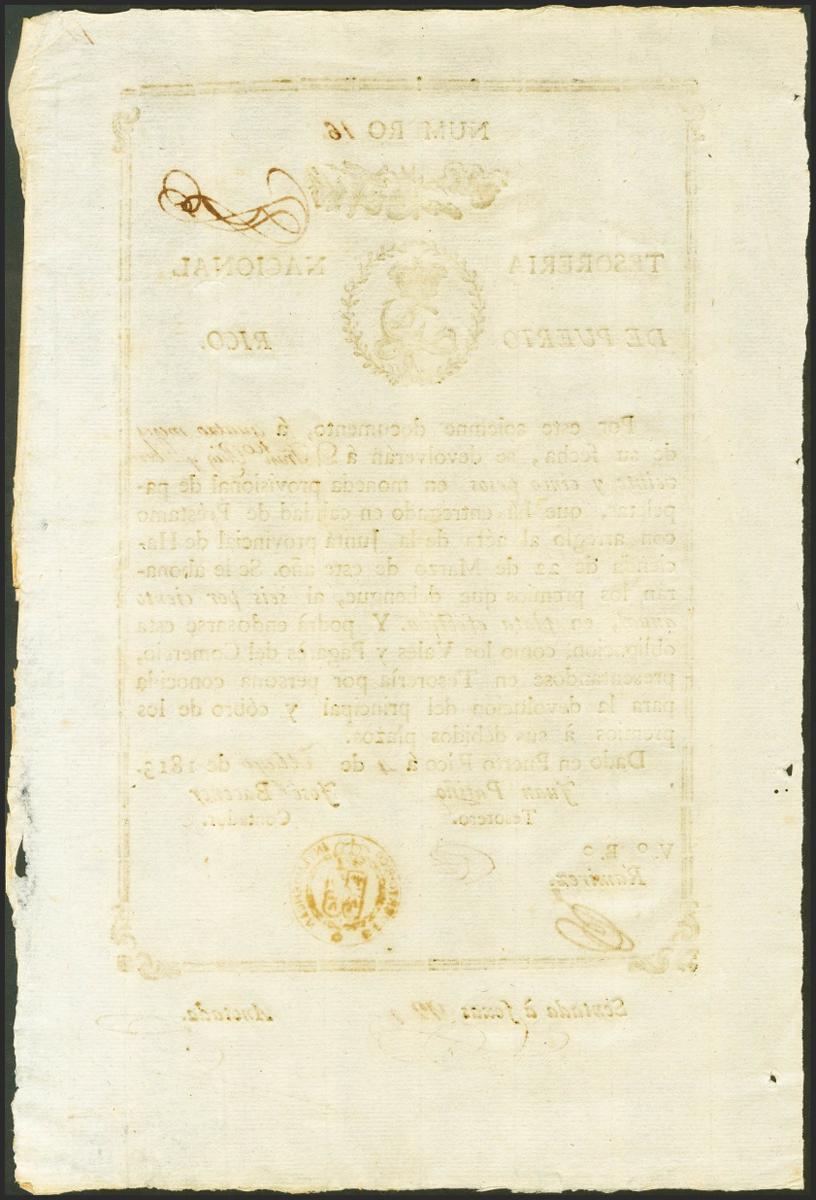 NUMERO 16
TESORERIA NACIONAL
DE PUERTO RICO.
Por este solemne documento, á quatro meses
de su fecha, se devolverán á D.
veinte y cinco pesos en moneda provisional de pa-
pel que há entregado en calidad de Préstamo
con arreglo al acta de la Junta provincial de Ha-
cienda de 22 de Marzo de este año. Se le abona-
rán los premios que debengue, al seis por ciento
anual, en plata efectiva. Y podrá endosarse esta
obligacion, como los Vales y Pagarès del Comercio,
presentandose en Tesorería por persona conocida
para la devolucion del principal y cobro de los
premios à sus debidos plazos.
Dado en Puerto Rico á de Mayo de 1813.
Juan Patiño José Bacener
Tesorero. Contador.
V.º B.º
Ramirez
Sentada à foxas Anotada.